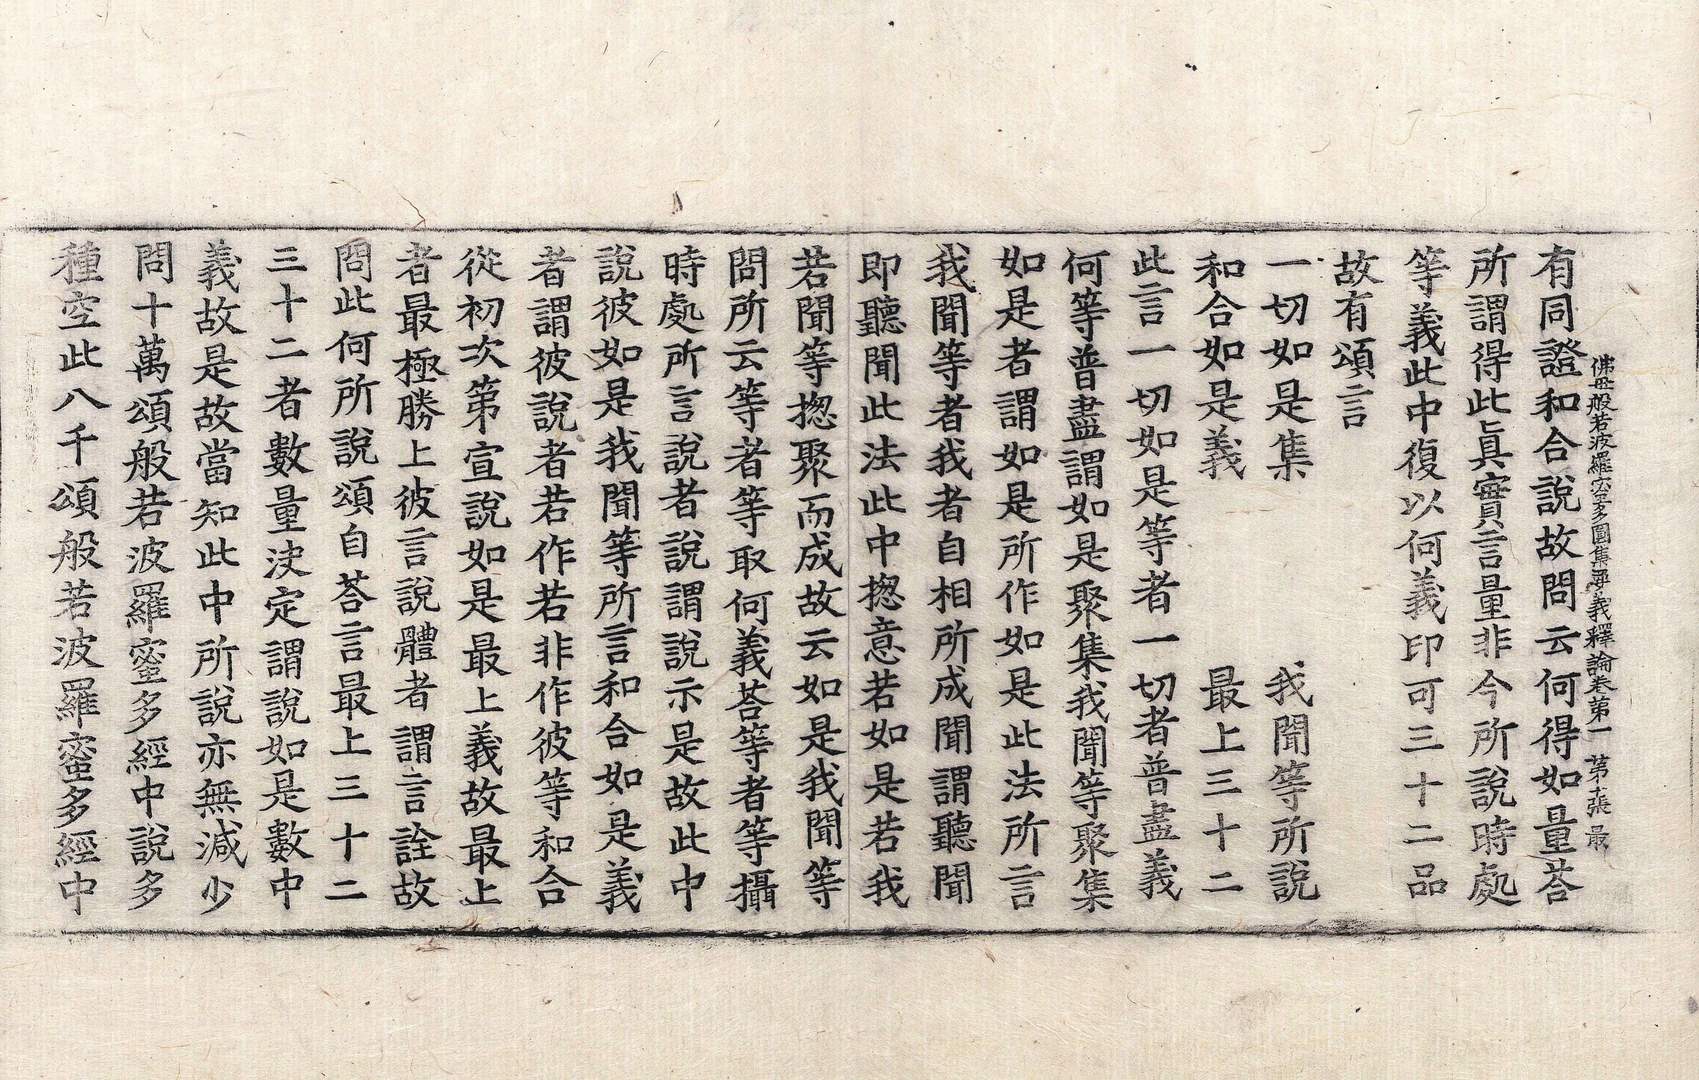 佛母般若波羅蜜多圓集要義釋論卷第一 第十張 最
有同證和合說故問云何得如量荅
所謂得此眞實言量非今所說時處
等義此中復以何義印可三十二品
故有頌言
一切如是集 我聞等所說
和合如是義 最上三十二
此言一切如是等者一切者普盡義
何等普盡謂如是聚集我聞等聚集
如是者謂如是所作如是此法所言
我聞等者我者自相所成聞謂聽聞
即聽聞此法此中揔意若如是若我
若聞等揔聚而成故云如是我聞等
問所云等者等取何義荅等者等攝
時處所言說者說謂說示是故此中
說彼如是我聞等所言和合如是義
者謂彼說者若作若非作彼等和合
從初次第宣說如是最上義故最上
者最極勝上彼言說體者謂言詮故
問此何所說頌自荅言最上三十二
三十二者數量決定謂說如是數中
義故是故當知此中所說亦無減少
問十萬頌般若波羅蜜多經中說多
種空此八千頌般若波羅蜜多經中